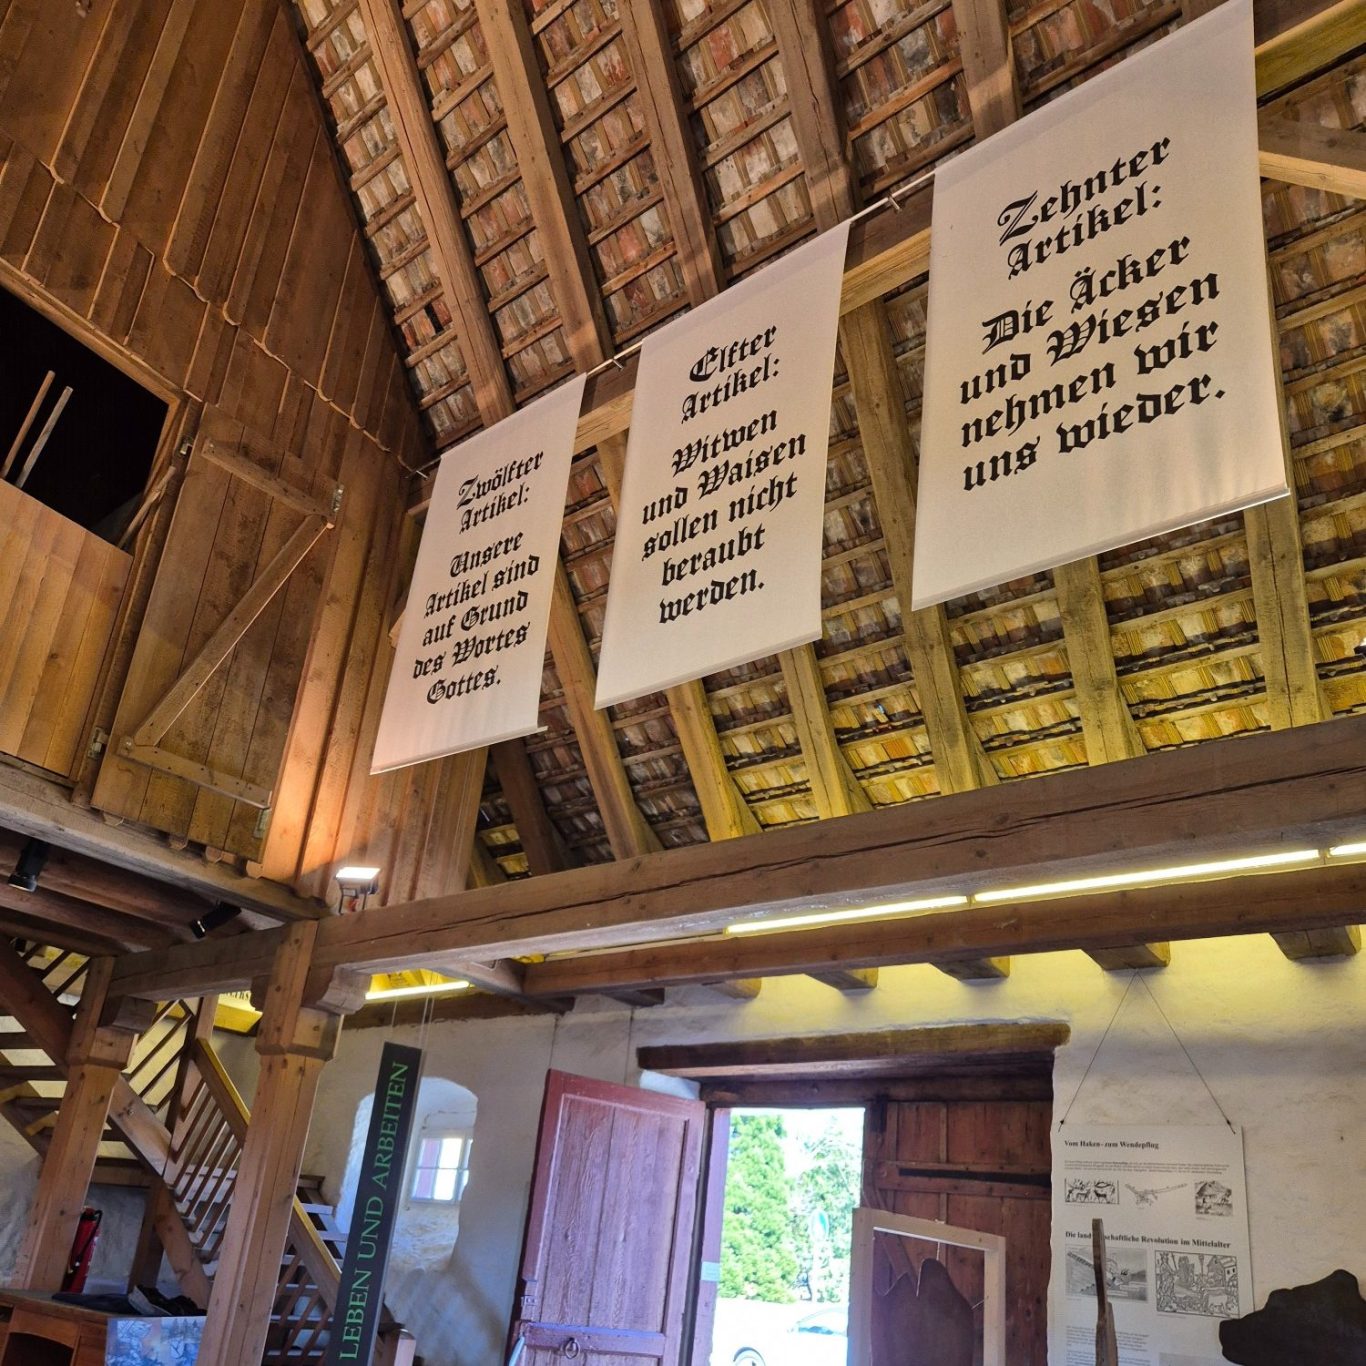 Zwölfter
Artikel:
Unsere
Artikel sind
auf Grund
des Wortes
Gottes.
Elfter
Artikel:
Witwen
und Waisen
sollen nicht
beraubt
werden.
Zehnter
Artikel:
Die Äcker
und Wiesen
nehmen wir
uns wieder.
LEBEN UND ARBEITEN
Vom Haken- zum Wendepflug
Die land schaftliche Revolution im Mittelalter